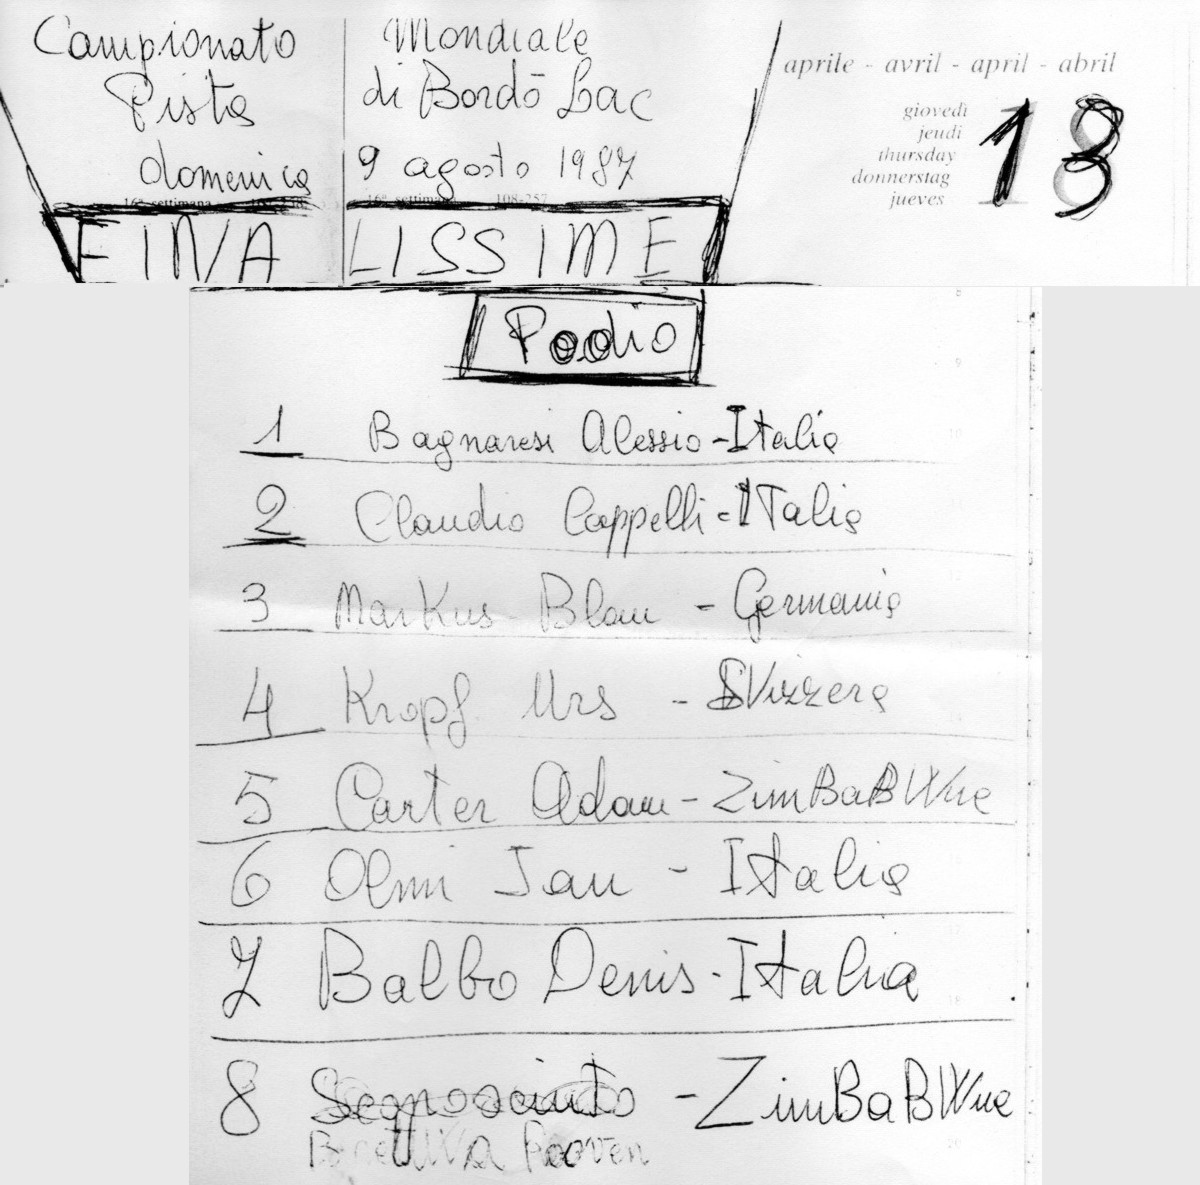 Campionato Mondiale
Pista di Bordō Lac
domenica 9 agosto 1987
16ª settimana 108-257
FINALISSIME
aprile - avril - april - abril
giovedì
jeudi
thursday
donnerstag
jueves
18
Podio
1 Bagnaresi Alessio - Italia
2 Claudio Cappelli - ITalia
3 Markus Blau - Germania
4 Kropf Urs - SVizzera
5 Carter Adam - ZimBaBWue
6 Olmi Jan - Italia
7 Balbo Denis - Italia
8 Segnoscinto - ZimBaBWue